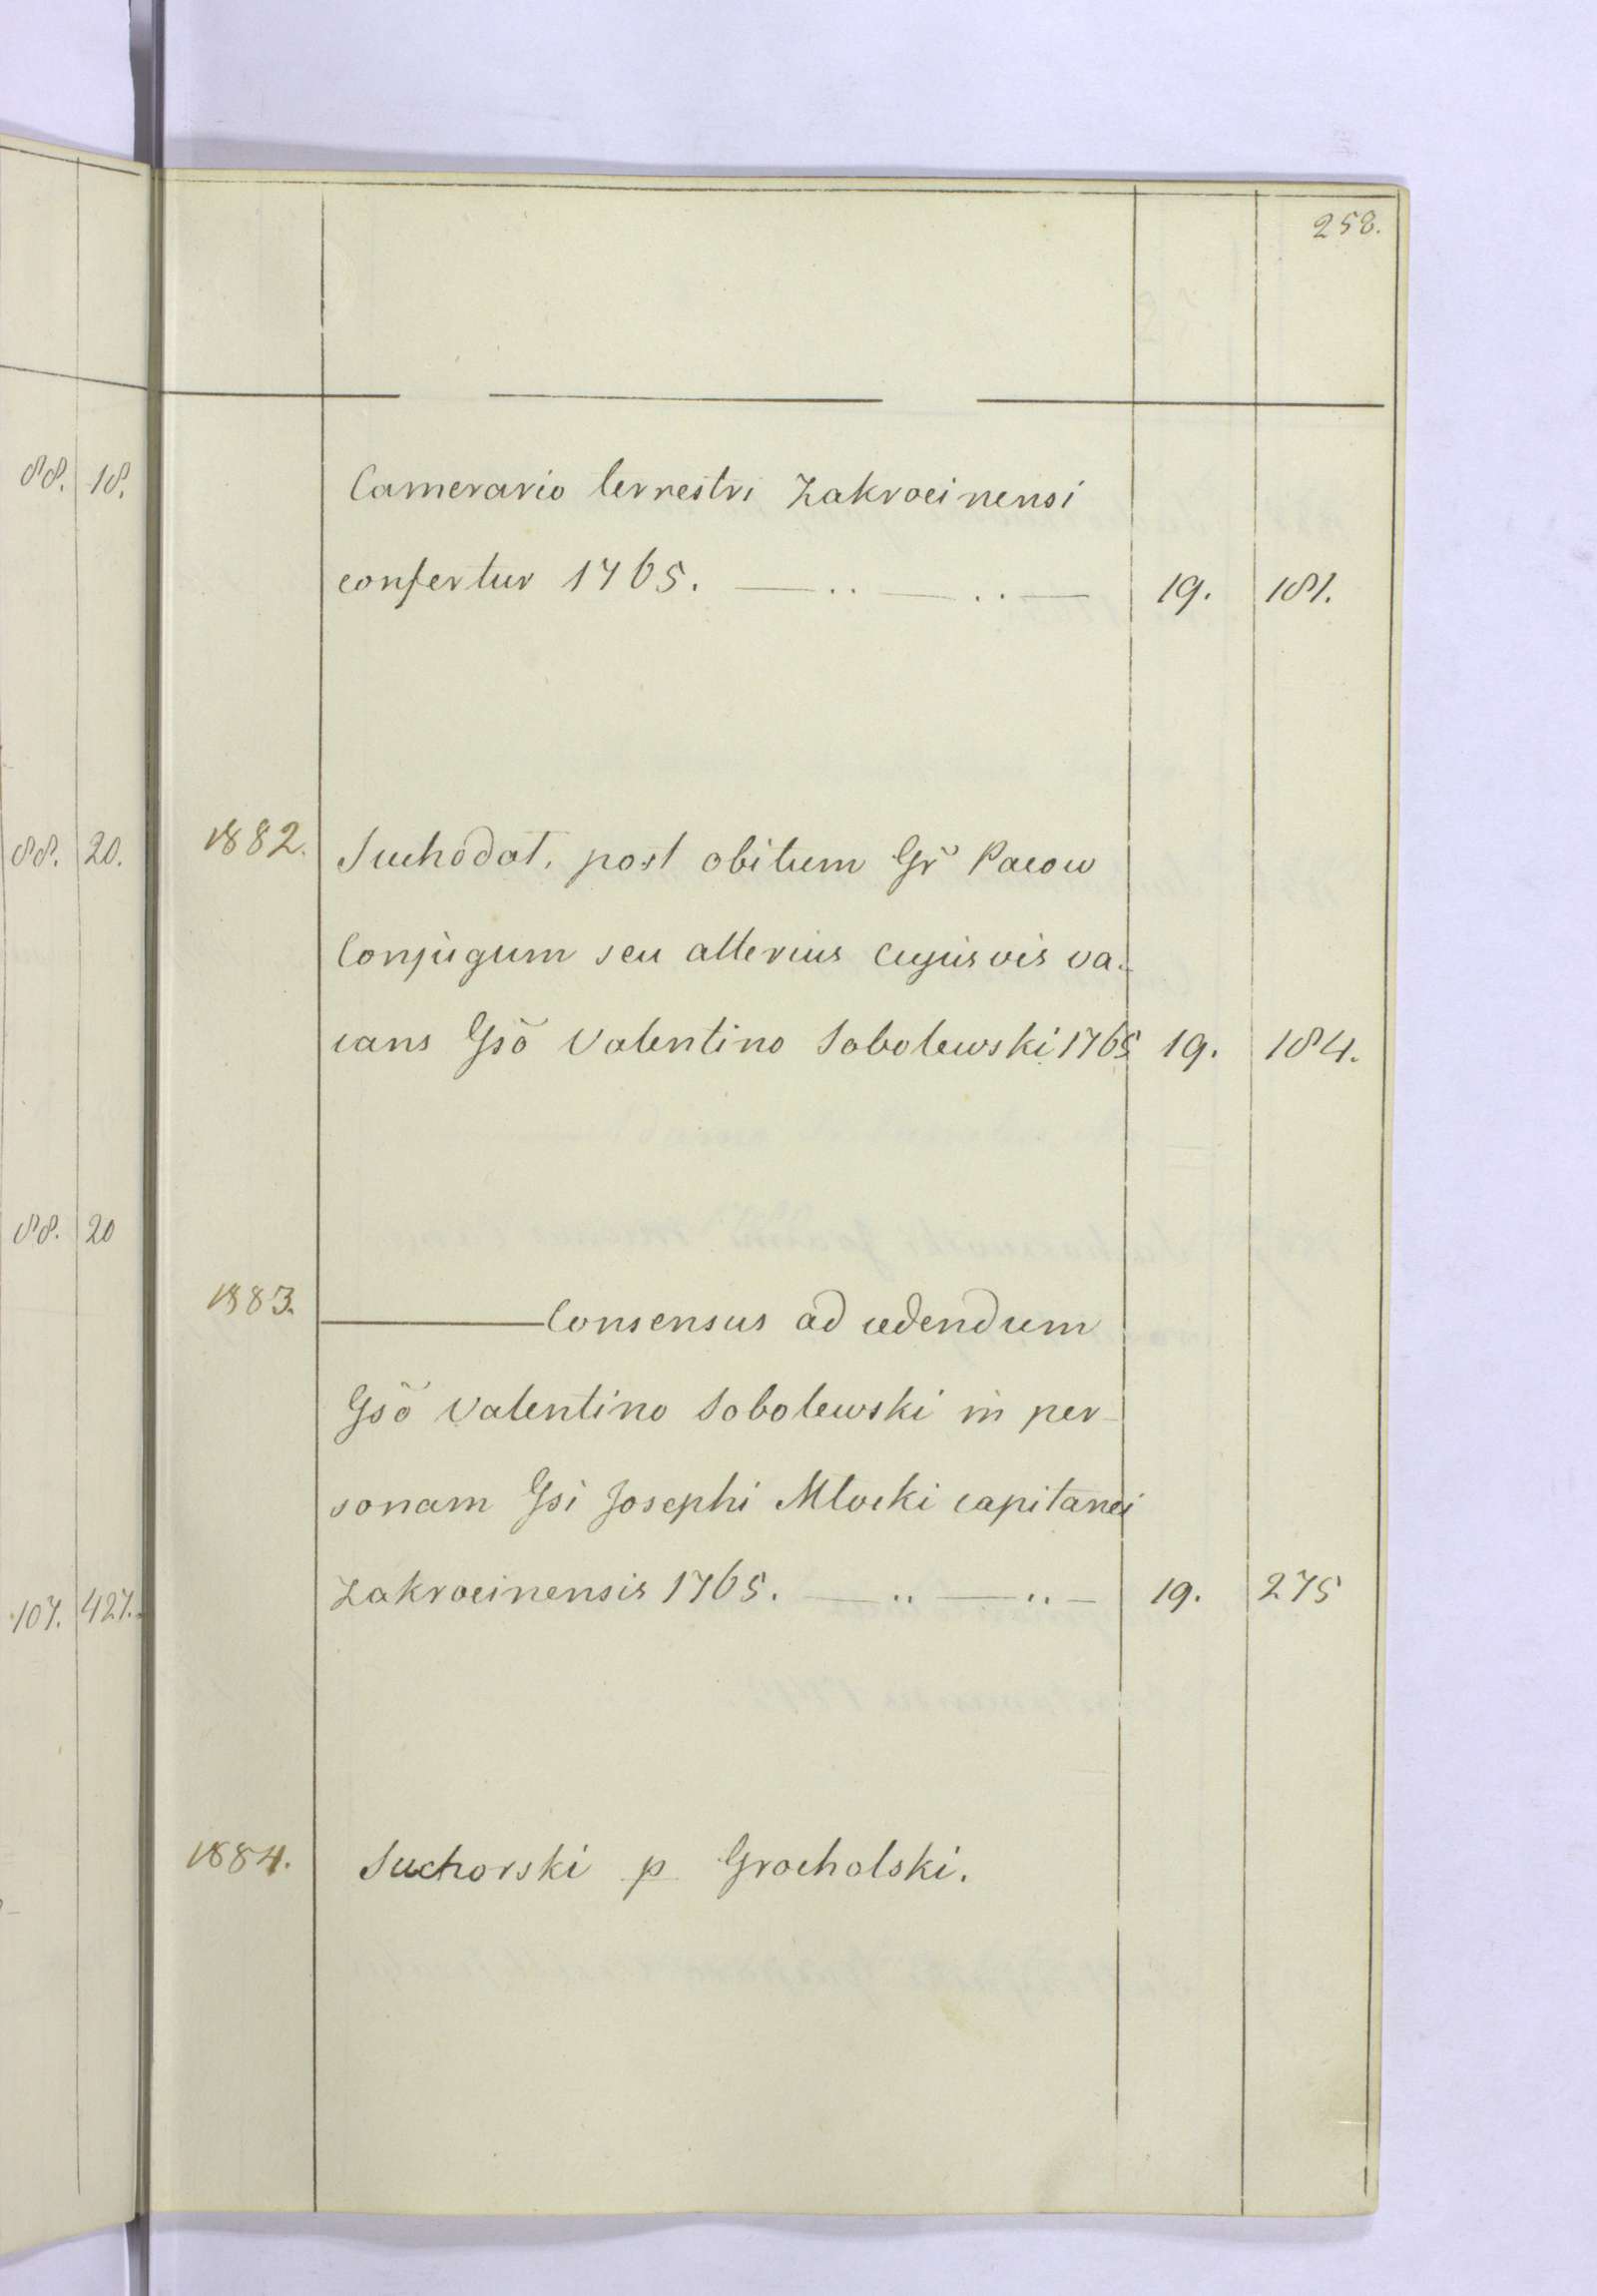 258.
88. 18.
Camerario terrestri Zakrocinensi
confertur 1765. — .. — .. — 19. 181.
88. 20.
1882. Suchodat. post obitum Gr̃ Pacow
Conjugum seu alterius cujusvis va-
cans Gsõ Valentino Sobolewski 1765 19. 184.
88. 20
1883. ——— Consensus ad cedendum
Gsõ Valentino Sobolewski in per-
sonam Gsi Josephi Mlocki capitanei
Zakrocinensis 1765. — .. — .. — 19. 275
107. 427.
1884. Suchorski p Grocholski.